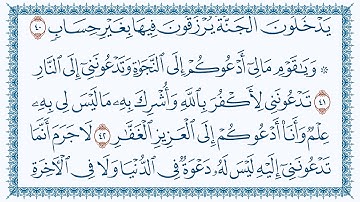 يَدْخُلُونَ ٱلْجَنَّةَ يُرْزَقُونَ فِيهَا بِغَيْرِ حِسَابٍ ٤٠
۞ وَيَٰقَوْمِ مَالِىٓ أَدْعُوكُمْ إِلَى ٱلنَّجَوٰةِ وَتَدْعُونَنِىٓ إِلَى ٱلنَّارِ
٤١ تَدْعُونَنِى لِأَكْفُرَ بِٱللَّهِ وَأُشْرِكَ بِهِۦ مَا لَيْسَ لِى بِهِۦ
عِلْمٌ وَأَنَا۠ أَدْعُوكُمْ إِلَى ٱلْعَزِيزِ ٱلْغَفَّٰرِ ٤٢ لَا جَرَمَ أَنَّمَا
تَدْعُونَنِىٓ إِلَيْهِ لَيْسَ لَهُۥ دَعْوَةٌ فِى ٱلدُّنْيَا وَلَا فِى ٱلْءَاخِرَةِ